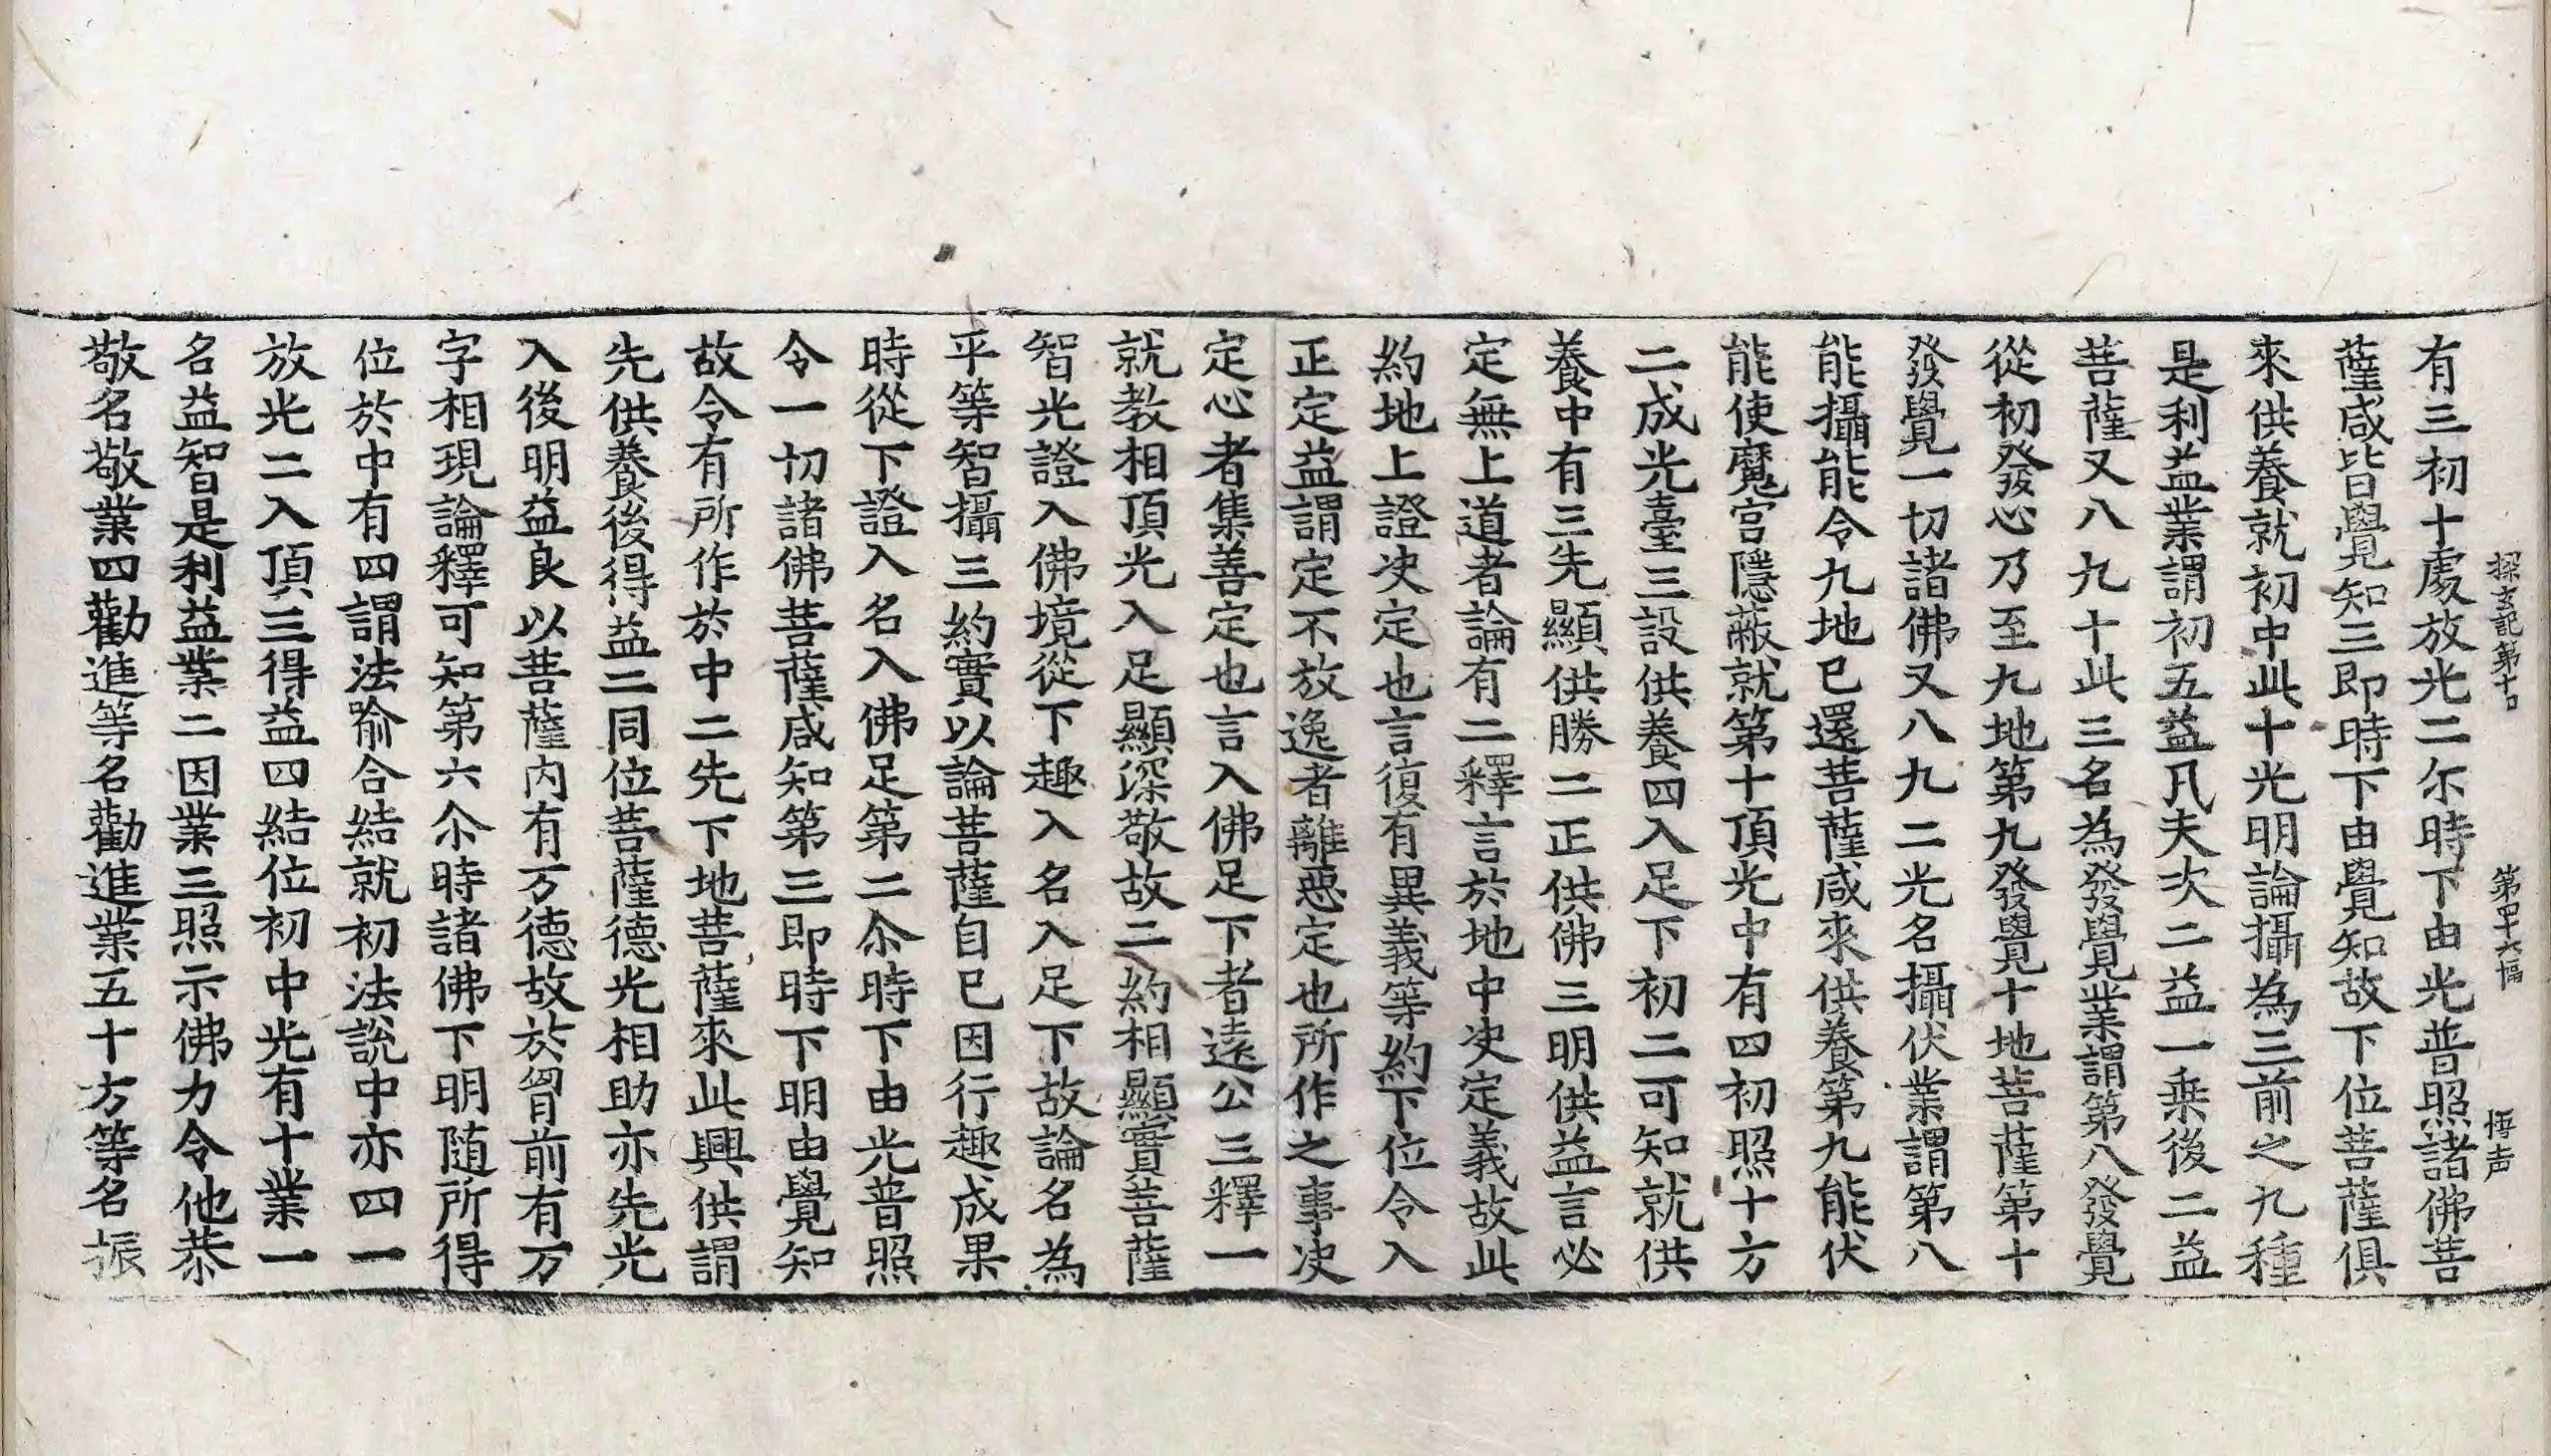 探玄記第十口 第四十六幅 悟声
有三初十處放光二尒時下由光普照諸佛菩
薩咸皆覺知三即時下由覺知故下位菩薩俱
來供養就初中此十光明論攝為三前之九種
是利益業謂初五益凡夫次二益一乗後二益
菩薩又八九十此三名為發覺業謂第八發覺
從初發心乃至九地第九發覺十地菩薩第十
發覺一切諸佛又八九二光名攝伏業謂第八
能攝能令九地已還菩薩咸來供養第九能伏
能使魔宮隱蔽就第十頂光中有四初照十方
二成光臺三設供養四入足下初二可知就供
養中有三先顯供勝二正供佛三明供益言必
定無上道者論有二釋言於地中决定義故此
約地上證决定也言復有異義等約下位令入
正定益謂定不放逸者離惡定也所作之事决
定心者集善定也言入佛足下者遠公三釋一
就教相頂光入足顯深敬故二約相顯實菩薩
智光證入佛境從下趣入名入足下故論名為
平等智攝三約實以論菩薩自已因行趣成果
時從下證入名入佛足第二尒時下由光普照
令一切諸佛菩薩咸知第三即時下明由覺知
故令有所作於中二先下地菩薩來此興供謂
先供養後得益二同位菩薩德光相助亦先光
入後明益良以菩薩内有万德故於胷前有万
字相現論釋可知第六尒時諸佛下明随所得
位於中有四謂法喻合結就初法說中亦四一
放光二入頂三得益四結位初中光有十業一
名益智是利益業二因業三照示佛力令他恭
敬名敬業四勸進等名勸進業五十方等名振